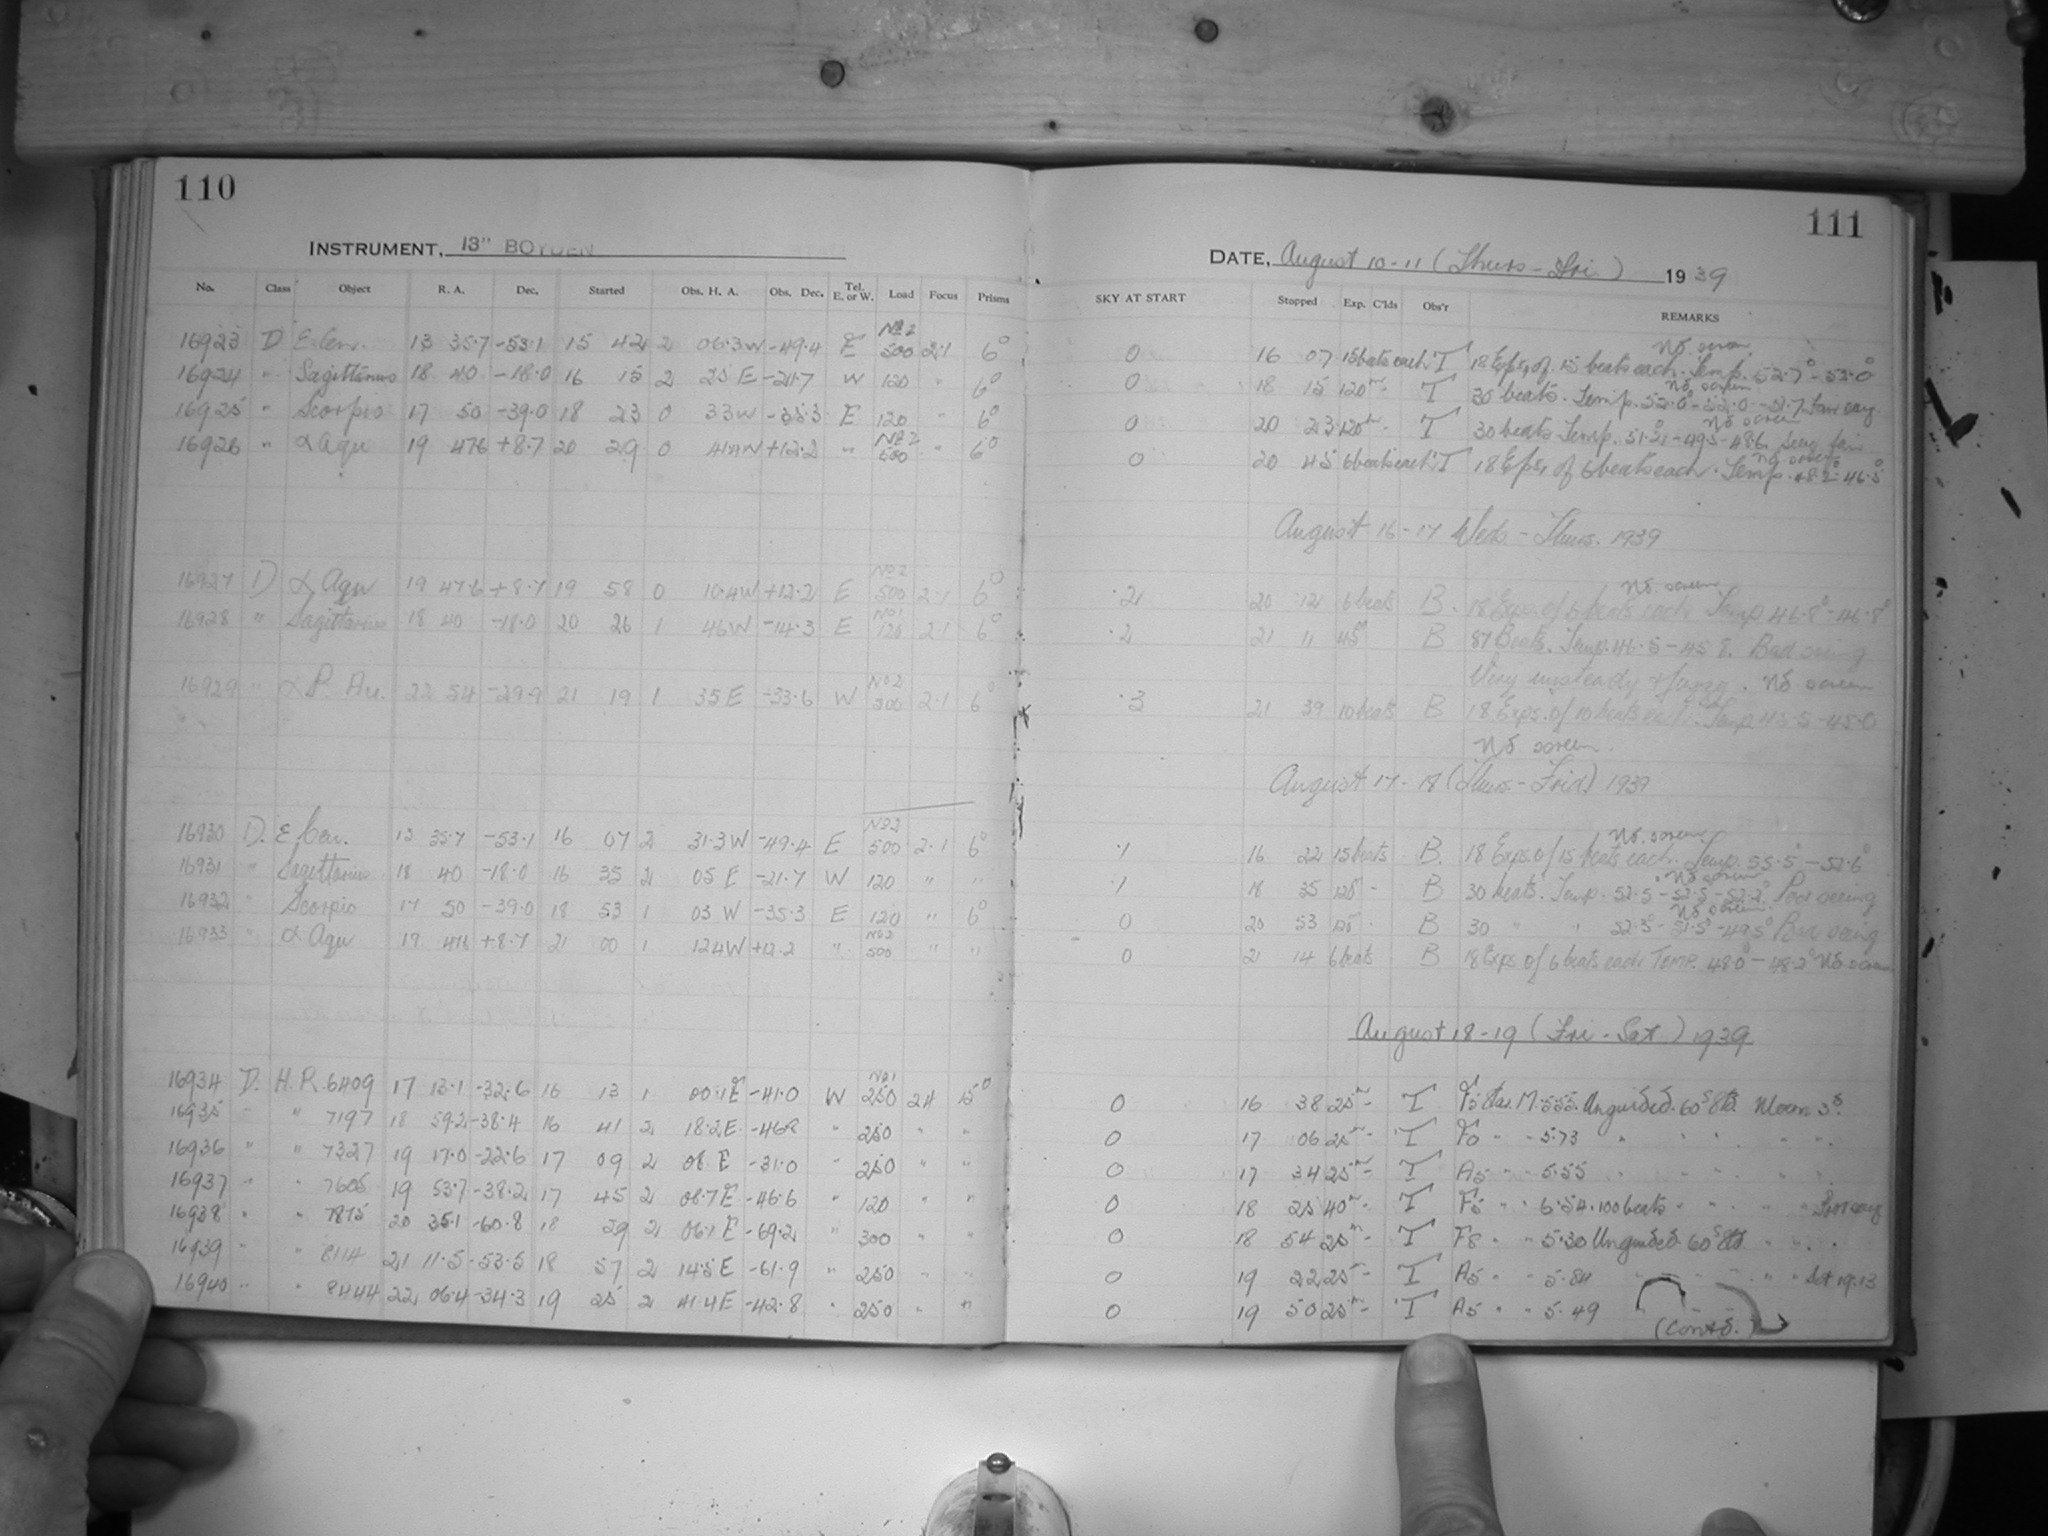 110
INSTRUMENT, 13" BOYDEN
No. Class Object R. A. Dec. Started Obs. H. A. Obs. Dec. Tel. E. or W. Load Focus Prisms
16923 D E Cen. 13 35.7 -53.1 15 42 2 06.3W -49.4 E No 2 500 2.1 6°
16924 " Sagittarius 18 40 -18.0 16 15 2 25 E -21.7 W 120 " 6°
16925 " Scorpio 17 50 -39.0 18 23 0 33W -35.3 E 120 " 6°
16926 " α Aqu 19 47.6 +8.7 20 29 0 +12.2 " No 2 500 " 6°
16927 D α Aqu 19 47.6 +8.7 19 58 0 10.4W +12.2 E No 2 500 2.1 6°
16928 " Sagittarius 18 40 -18.0 20 26 1 46W -14.3 E No 1 120 2.1 6°
16929 " α P. Au. 22 54 -29.9 21 19 1 35E -33.6 W No 2 500 2.1 6°
16930 D. ε Cen. 13 35.7 -53.1 16 07 2 31.3W -49.4 E No 2 500 2.1 6°
16931 " Sagittarius 18 40 -18.0 16 35 2 05 E -21.7 W 120 " "
16932 " Scorpio 17 50 -39.0 18 53 1 03 W -35.3 E 120 " 6°
16933 " α Aqu 19 47.6 +8.7 21 00 1 124W +12.2 " No 2 500 " "
16934 D. H.R. 6409 17 13.1 -32.6 16 13 1 00.1E -41.0 W No 1 250 2.4 15°
16935 " " 7197 18 59.2 -38.4 16 41 2 18.2E " 250 " "
16936 " " 7327 19 17.0 -22.6 17 09 2 08 E -31.0 " 250 " "
16937 " " 7605 19 53.7 -38.2 17 45 2 08.7E -46.6 " 120 " "
16938 " " 7875 20 35.1 -60.8 18 29 2 06.1E -69.2 " 300 " "
16939 " " 8114 21 11.5 -53.5 18 57 2 14.5E -61.9 " 250 " "
16940 " " 8444 22 06.4 -34.3 19 25 2 41.4E -42.8 " 250 " "
111
DATE, August 10-11 (Thurs-Fri) 1939
SKY AT START Stopped Exp. C'lds Obs'r REMARKS
No screen
0 16 07 15 beats each T 18 Exps, of 15 beats each. Temp. 52.7° - 53.0°
No screen
0 18 15 120m- T 30 beats. Temp. 52.0° - 52.0 - 51.7
No screen
0 20 23 120m- T 30 beats Temp. 51.2 - 49.5 - 48.6. Seeing fair
No screen
0 20 45 6 beats each T 18 Exps, of 6 beats each. Temp. 48.2° 46.5°
August 16-17 Weds-Thurs. 1939
No screen
.2 20 12 6 beats B. 18 Exps. of 6 beats each Temp 46.8° - 46.8°
.2 21 11 45m B 87 Beats. Temp. 46.5 - 45 8. Bad seeing
Very unsteady & fuzzy. No screen
.3 21 39 10 beats B 18 Exps. of 10 beats each. Temp 45.5 - 45.0
No screen.
August 17-18 (Thurs-Frid) 1939
No screen
.1 16 22 15 beats B. 18 Exps. of 15 beats each. Temp. 55.5° - 52.6°
No screen
.1 18 35 120 - B 30 beats. Temp. 52.5 - 52.5 - 52.2° Poor seeing
No screen
0 20 53 120 - B 30 " " 52.3° - 51.5° - 49.5° Bad seeing
0 21 14 6 beats B 18 Exps of 6 beats each Temp. 48.0 - 48.2° No screen
August 18-19 (Fri-Sat) 1939
0 16 38 25m- T F5 Star. M. 5.55. Unguided. 60s Bts. Moon 3d.
0 17 06 25m- T F0 " " 5.73 " " " " "
0 17 34 25m- T A5 " " 5.55 " " " "
0 18 25 40m- T F5 " " 6.54. 100 beats " " "
0 18 54 25m- T F8 " " 5.30 Unguided 60s Bts " "
0 19 22 25m- T A5 " " 5.84 " " " " Set 19.13
0 19 50 25m- T A5 " " 5.49
(Contd.)